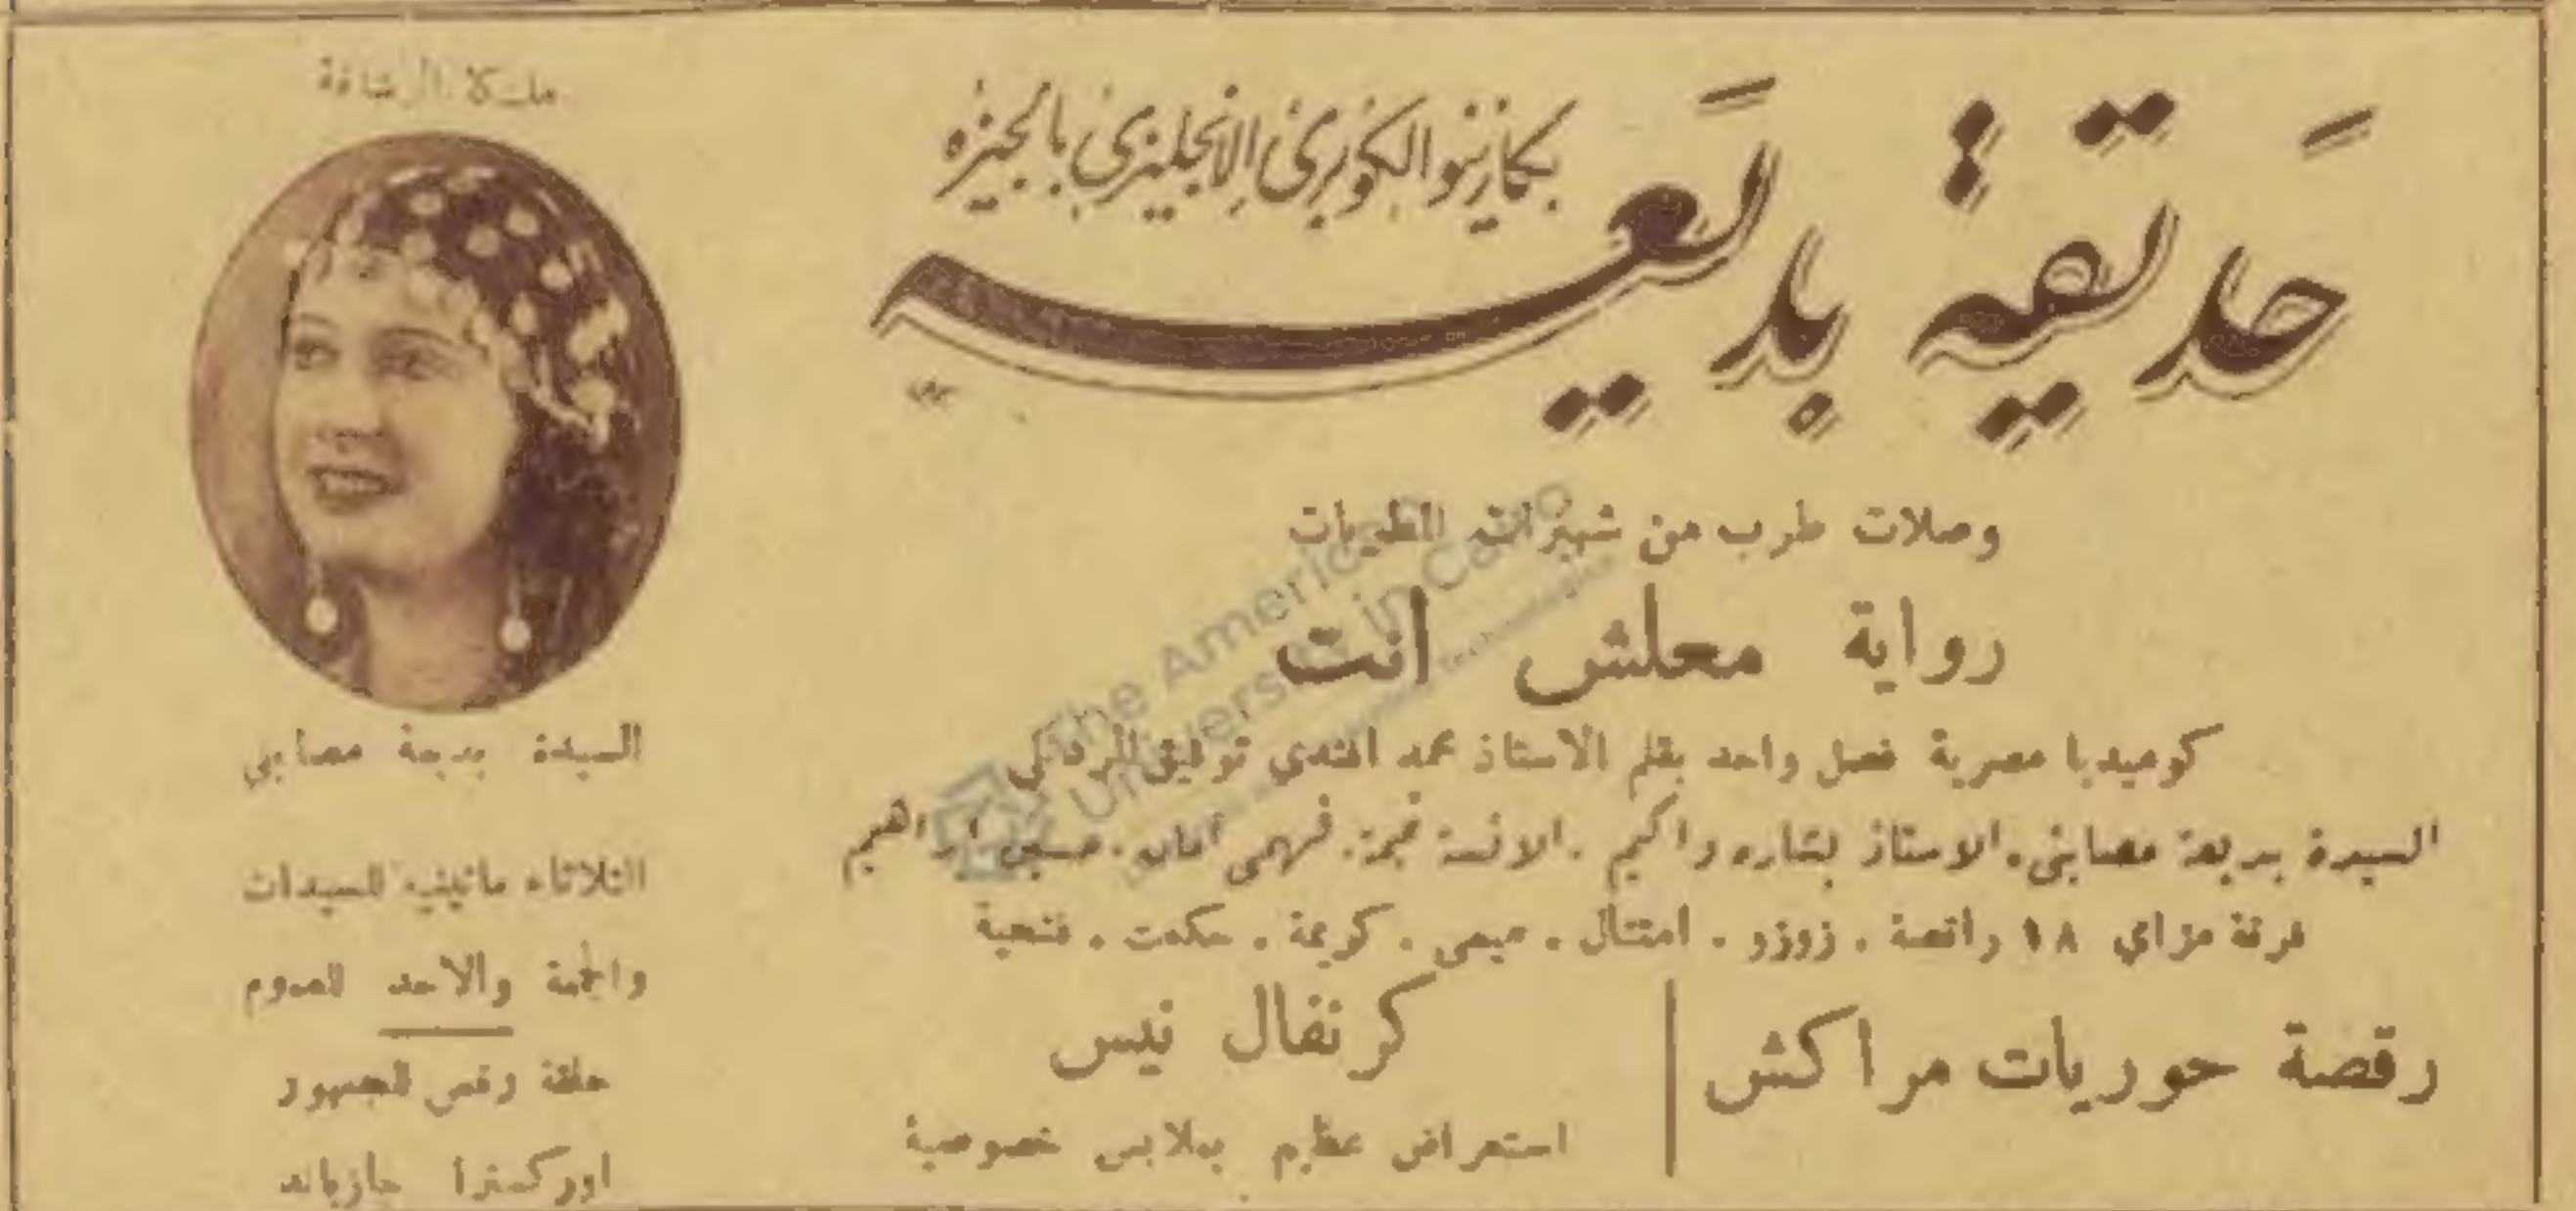 حديقة بديعه
بكازينو الكوبرى الانجليزي بالجيزه
وصلات طرب من شهيرات المطربات
رواية معلش انت
كوميديا مصرية فصل واحد بقلم الاستاذ محمد افندى توفيق
السيدة بديعة مصابنى. الاستاذ بشاره واكيم. الانسة نجمة. فهمى أمان. حسين ابراهيم
فرقة مزاي ١٨ راقصة. زوزو. امتثال. ميمى. كريمة. حكمت. فتحية
رقصة حوريات مراكش
كرنفال نيس
استعراض عظيم بملابس خصوصية
ملكة الرشاقة
السيدة بديعة مصابنى
الثلاثاء ماتينيه للسيدات
والجمعة والاحد للعموم
حلقة رقص للجمهور
اوركسترا جازباند
The American
University in Cairo